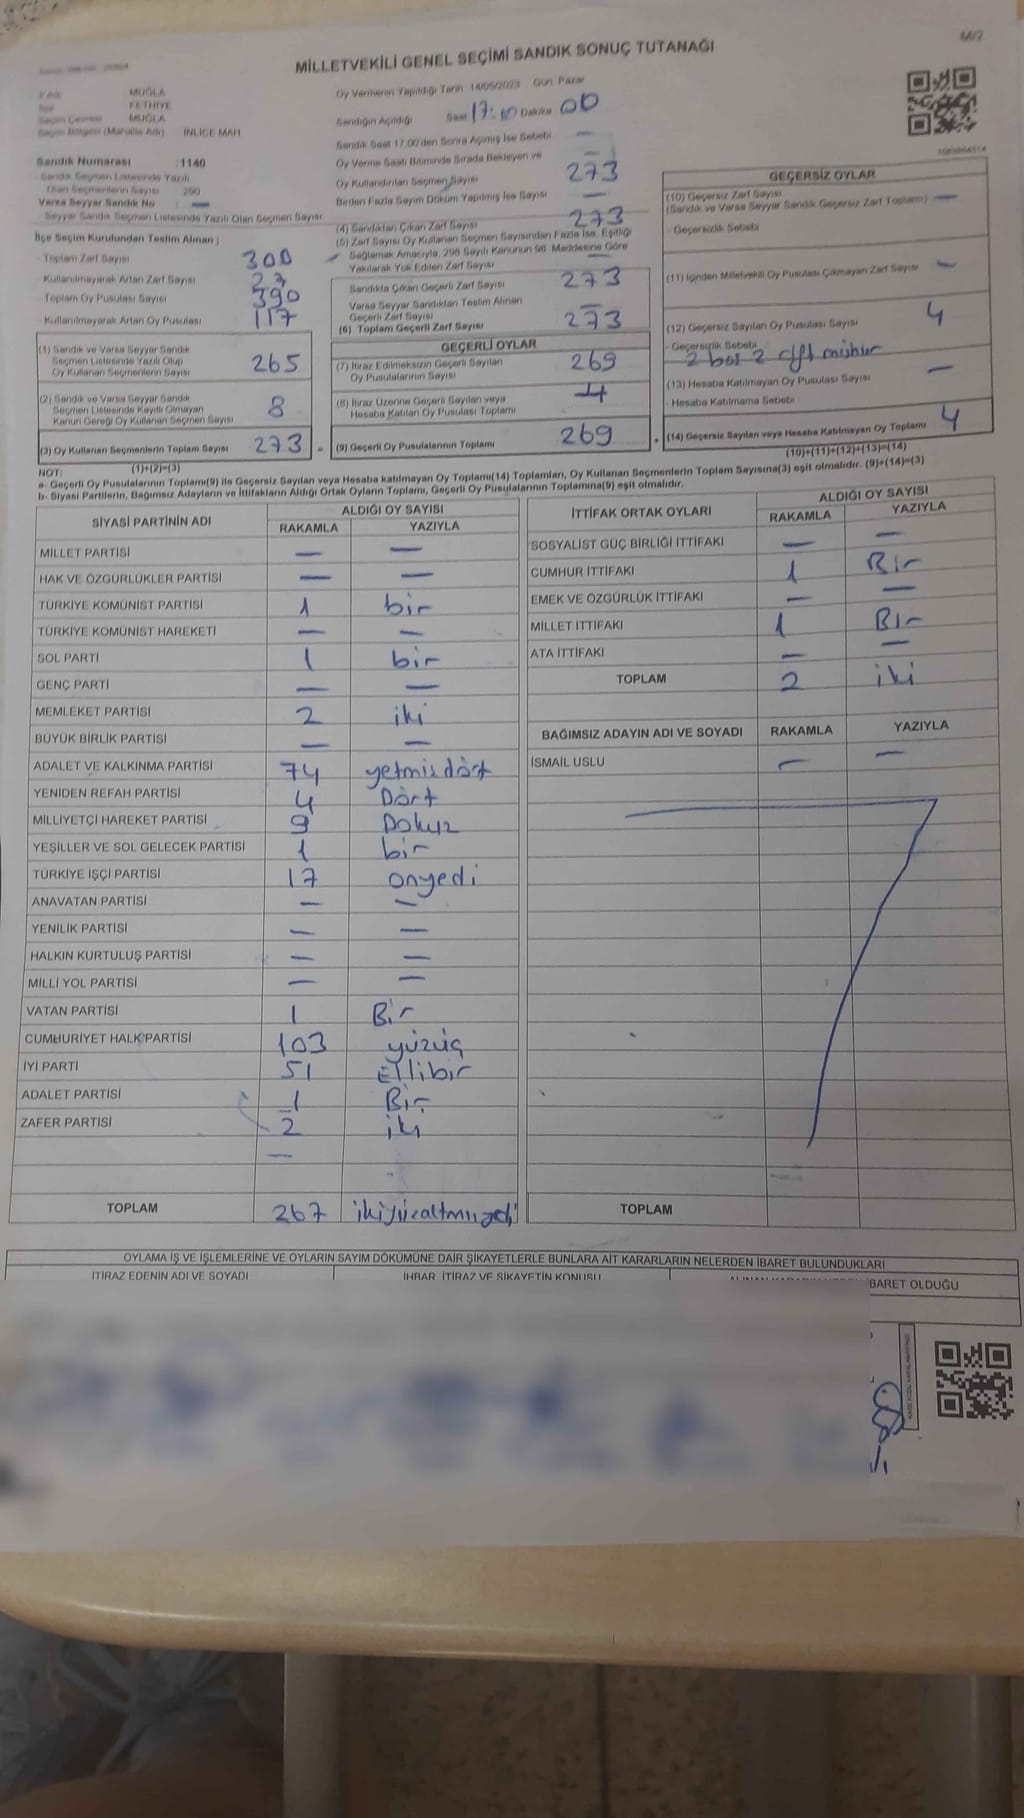 M/2
MİLLETVEKİLİ GENEL SEÇİMİ SANDIK SONUÇ TUTANAĞI
MUĞLA
İlçe FETHİYE
Seçim Çevresi MUĞLA
Seçim Bölgesi (Mahalle Adı) İNLİCE MAH
Sandık Numarası : 1140
Sandık Seçmen Listesinde Yazılı
Olan Seçmenlerin Sayısı 290
Varsa Seyyar Sandık No : —
Seyyar Sandık Seçmen Listesinde Yazılı Olan Seçmen Sayısı
İlçe Seçim Kurulundan Teslim Alınan ;
Toplam Zarf Sayısı 300
Kullanılmayarak Artan Zarf Sayısı 27
Toplam Oy Pusulası Sayısı 390
Kullanılmayarak Artan Oy Pusulası 117
(1) Sandık ve Varsa Seyyar Sandık
Seçmen Listesinde Yazılı Olup
Oy Kullanan Seçmenlerin Sayısı 265
(2) Sandık ve Varsa Seyyar Sandık
Seçmen Listesinde Kayıtlı Olmayan
Kanun Gereği Oy Kullanan Seçmen Sayısı 8
(3) Oy Kullanan Seçmenlerin Toplam Sayısı 273 =
(1)+(2)=(3)
Oy Vermenin Yapıldığı Tarih 14/05/2023 Gün Pazar
Sandığın Açıldığı Saat 17:10 Dakika 00
Sandık Saat 17:00'den Sonra Açılmış İse Sebebi —
Oy Verme Saati Bitiminde Sırada Bekleyen ve
Oy Kullandırılan Seçmen Sayısı 273
Birden Fazla Sayım Döküm Yapılmış İse Sayısı —
(4) Sandıktan Çıkan Zarf Sayısı 273
(5) Zarf Sayısı Oy Kullanan Seçmen Sayısından Fazla İse, Eşitliği
Sağlamak Amacıyla, 298 Sayılı Kanunun 98. Maddesine Göre
Yakılarak Yok Edilen Zarf Sayısı —
Sandıkta Çıkan Geçerli Zarf Sayısı 273
Varsa Seyyar Sandıktan Teslim Alınan
Geçerli Zarf Sayısı —
(6) Toplam Geçerli Zarf Sayısı 273
GEÇERLİ OYLAR
(7) İtiraz Edilmeksizin Geçerli Sayılan
Oy Pusulalarının Sayısı 269
(8) İtiraz Üzerine Geçerli Sayılan veya
Hesaba Katılan Oy Pusulası Toplamı
(9) Geçerli Oy Pusulalarının Toplamı 269 +
GEÇERSİZ OYLAR
(10) Geçersiz Zarf Sayısı —
(Sandık ve Varsa Seyyar Sandık Geçersiz Zarf Toplamı)
- Geçersizlik Sebebi
(11) İçinden Milletvekili Oy Pusulası Çıkmayan Zarf Sayısı —
(12) Geçersiz Sayılan Oy Pusulası Sayısı 4
- Geçersizlik Sebebi
2 boş 2 çift mühür
(13) Hesaba Katılmayan Oy Pusulası Sayısı —
- Hesaba Katılmama Sebebi
(14) Geçersiz Sayılan veya Hesaba Katılmayan Oy Toplamı 4
(10)+(11)+(12)+(13)=(14)
NOT:
a- Geçerli Oy Pusulalarının Toplamı(9) ile Geçersiz Sayılan veya Hesaba katılmayan Oy Toplamı(14) Toplamları, Oy Kullanan Seçmenlerin Toplam Sayısına(3) eşit olmalıdır. (9)+(14)=(3)
b- Siyasi Partilerin, Bağımsız Adayların ve İttifakların Aldığı Ortak Oyların Toplamı, Geçerli Oy Pusulalarının Toplamına(9) eşit olmalıdır.
SİYASİ PARTİNİN ADI ALDIĞI OY SAYISI
RAKAMLA YAZIYLA
MİLLET PARTİSİ — —
HAK VE ÖZGÜRLÜKLER PARTİSİ — —
TÜRKİYE KOMÜNİST PARTİSİ 1 bir
TÜRKİYE KOMÜNİST HAREKETİ — —
SOL PARTİ 1 bir
GENÇ PARTİ — —
MEMLEKET PARTİSİ 2 iki
BÜYÜK BİRLİK PARTİSİ — —
ADALET VE KALKINMA PARTİSİ 74 yetmişdört
YENİDEN REFAH PARTİSİ 4 Dört
MİLLİYETÇİ HAREKET PARTİSİ 9 Dokuz
YEŞİLLER VE SOL GELECEK PARTİSİ 1 bir
TÜRKİYE İŞÇİ PARTİSİ 17 onyedi
ANAVATAN PARTİSİ — —
YENİLİK PARTİSİ — —
HALKIN KURTULUŞ PARTİSİ — —
MİLLİ YOL PARTİSİ — —
VATAN PARTİSİ 1 Bir
CUMHURİYET HALK PARTİSİ 103 yüzüç
İYİ PARTİ 51 Ellibir
ADALET PARTİSİ 1 Bir
ZAFER PARTİSİ 2 iki
—
TOPLAM 267 ikiyüzaltmışyedi
İTTİFAK ORTAK OYLARI ALDIĞI OY SAYISI
RAKAMLA YAZIYLA
SOSYALİST GÜÇ BİRLİĞİ İTTİFAKI — —
CUMHUR İTTİFAKI 1 Bir
EMEK VE ÖZGÜRLÜK İTTİFAKI — —
MİLLET İTTİFAKI 1 Bir
ATA İTTİFAKI — —
TOPLAM 2 iki
BAĞIMSIZ ADAYIN ADI VE SOYADI RAKAMLA YAZIYLA
İSMAİL USLU — —
TOPLAM
OYLAMA İŞ VE İŞLEMLERİNE VE OYLARIN SAYIM DÖKÜMÜNE DAİR ŞİKAYETLERLE BUNLARA AİT KARARLARIN NELERDEN İBARET BULUNDUKLARI
İTİRAZ EDENİN ADI VE SOYADI İHBAR, İTİRAZ VE ŞİKAYETİN KONUSU İBARET OLDUĞU